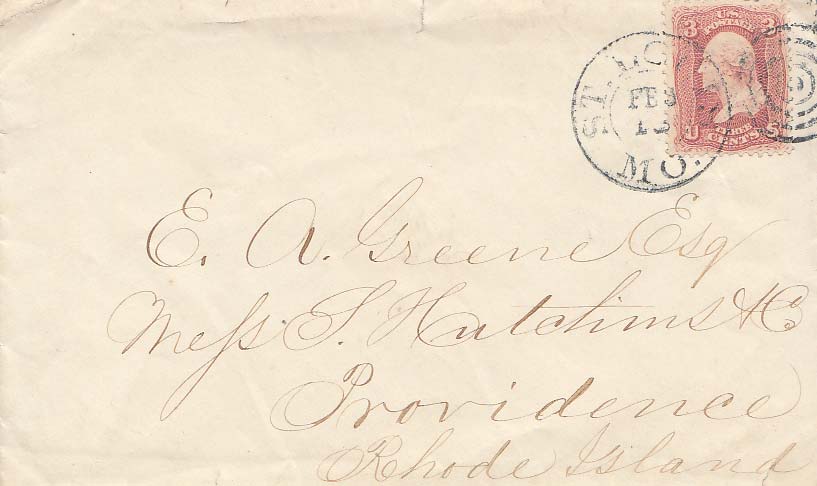 3 U.S. 3
POSTAGE
U S
CENTS
ST. LO
FEB
MO.
E. A. Greene Esq
Mess S. Hutchins & Co
Providence
Rhode Island